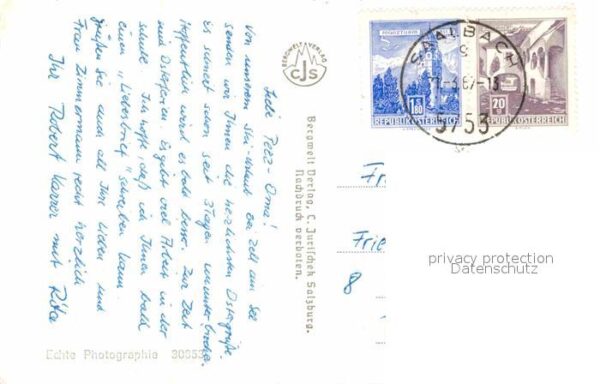 Liebe Pezz-Oma!
Von unserem Ski-urlaub bei Zell am See
senden wir Ihnen die herzlichsten Ostergrüße.
Es schneit schon seit 3 Tagen ununterbrochen.
Hoffentlich wird es bald besser. Zur Zeit
sind Osterferien. Es gibt viel Arbeit in der
Schule. Ich hoffe, daß ich Ihnen bald
einen "Liebesbrief" schreiben kann.
grüßen Sie auch all Ihre Lieben und
Frau Zimmermann recht herzlich
Ihr Hubert Karrer mit Rita
BERGWELT VERLAG
CJS
Bergwelt Verlag, C. Jurischek Salzburg.
Nachdruck verboten.
Echte Photographie 30853
1.80
REPUBLIK ÖSTERREICH
20
REPUBLIK ÖSTERREICH
SAALBACH
5753
Fr
Frie
8
privacy protection
Datenschutz